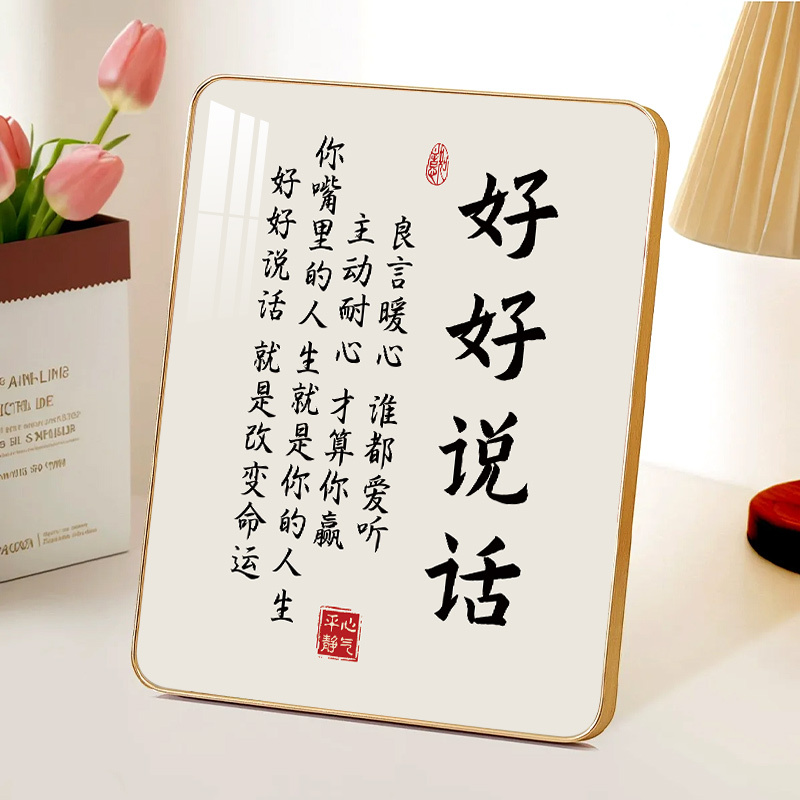 好好说话
良言暖心 谁都爱听
主动耐心 才算你赢
你嘴里的人生就是你的人生
好好说话 就是改变命运
心气
平静